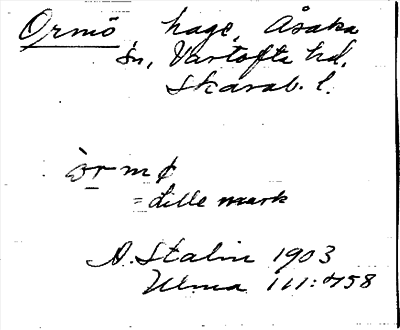 Ormö, hage, Åsaka
sn, Vartofta hd,
Skarab. l.
òrmø
= dille mark
A. Stalin 1903
Ulma 111:758